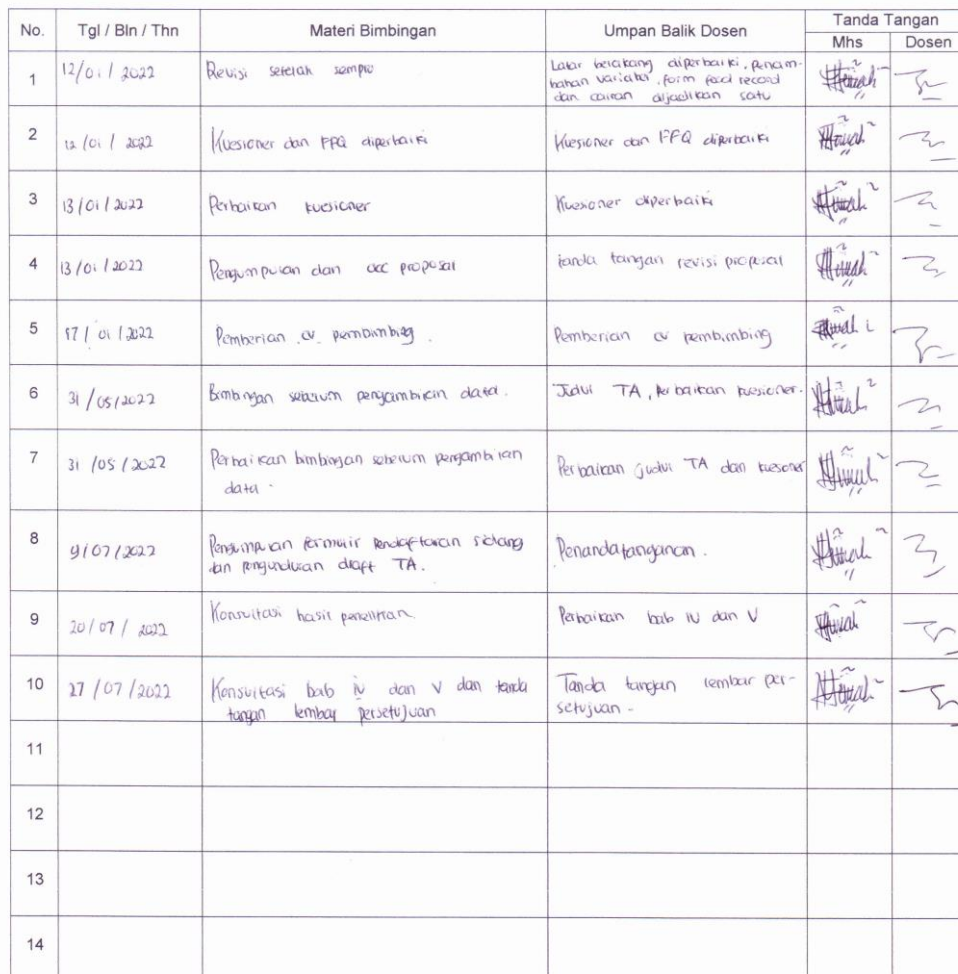 No. Tgl / Bln / Thn Materi Bimbingan Umpan Balik Dosen Tanda Tangan
Mhs Dosen
1 12/01/2022 Revisi setelah sempro Latar belakang diperbaiki, penam-
bahan variabel, form food record
dan cairan dijadikan satu
2 12/01/2022 Kuesioner dan FFQ diperbaiki Kuesioner dan FFQ diperbaiki
3 13/01/2022 Perbaikan kuesioner Kuesioner diperbaiki
4 13/01/2022 Pengumpulan dan acc proposal tanda tangan revisi proposal
5 17/01/2022 Pemberian cv pembimbing. Pemberian cv pembimbing
6 31/05/2022 Bimbingan sebelum pengambilan data. Judul TA, Perbaikan kuesioner.
7 31/05/2022 Perbaikan bimbingan sebelum pengambilan Perbaikan judul TA dan kuesioner
data.
8 9/07/2022 Pengumpulan formulir pendaftaran sidang Penandatanganan.
dan pengunduran draft TA.
9 20/07/2022 Konsultasi hasil penelitian Perbaikan bab IV dan V
10 27/07/2022 Konsultasi bab IV dan V dan tanda Tanda tangan lembar per-
tangan lembar persetujuan setujuan.
11
12
13
14